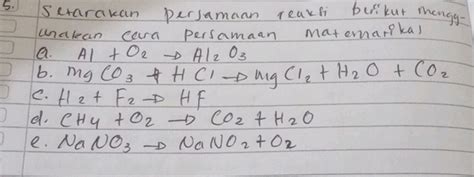 5. Setarakan persamaan reaksi berikut mengg-
unakan cara persamaan matematika!
a. Al + O2 → Al2O3
b. mgCO3 + HCl → mgCl2 + H2O + CO2
c. H2 + F2 → Hf
d. CH4 + O2 → CO2 + H2O
e. NaNO3 → NaNO2 + O2